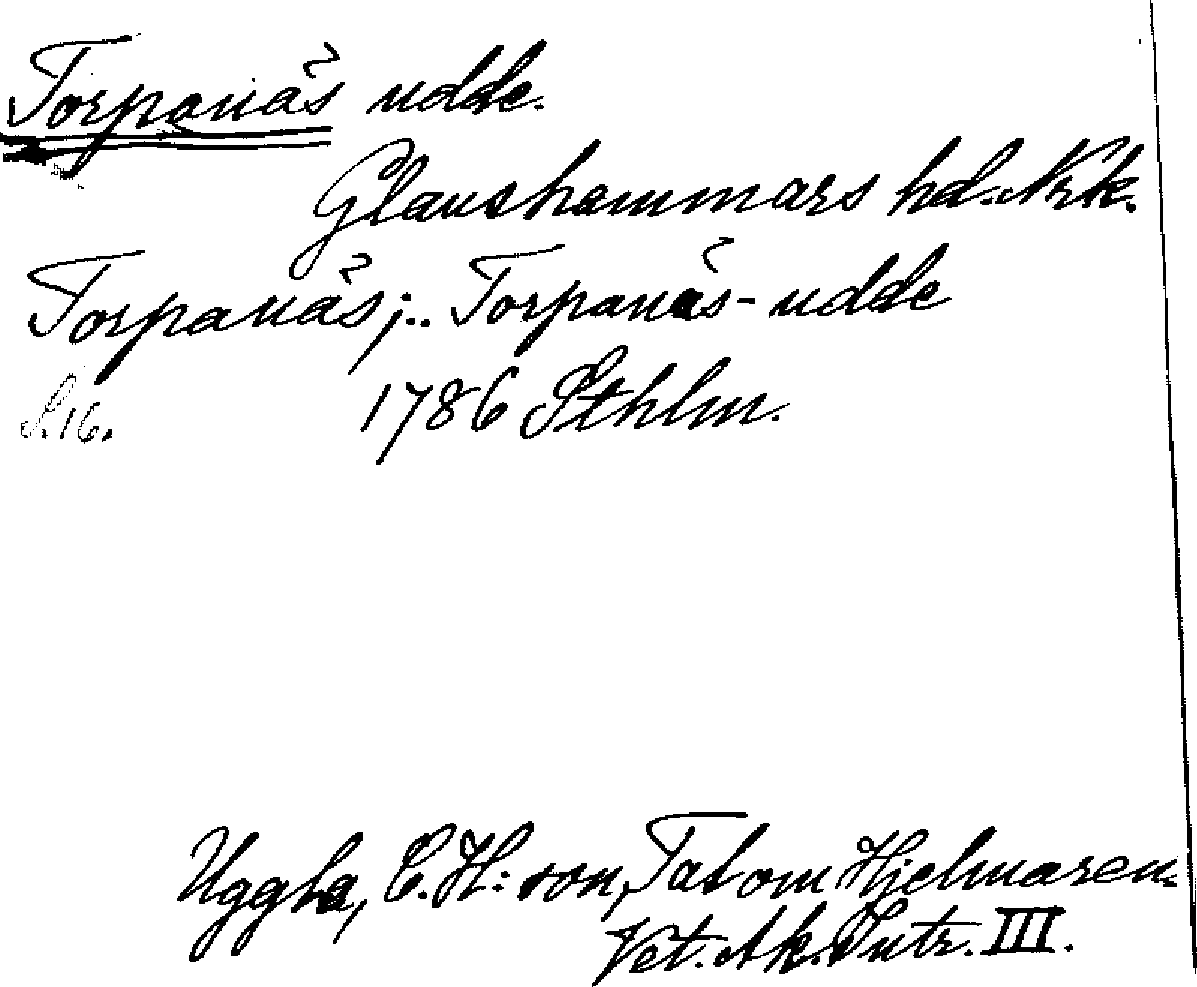 Torpanäs udde.
Glanshammars hd. Nrk.
Torpanäs; .. Torpanäs-udde
S. 16. 1786 Sthlm.
Uggla, C. H:son, Tal om Hjelmaren.
Vet. Ak. Intr. III.